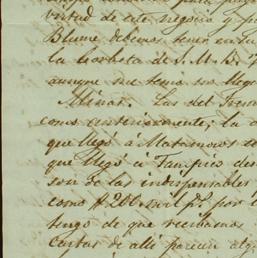 virtud de este negocio y p
Blume debemos tener en su
la Corbeta de S. M. B.
aunque su tema sn lleg
Minas. Las del Fresn
como anteriormente; la c
que llegó á Matamoros
que llegó á Tampico des
son de las indispensables
como $200 mil ps. por
tengo de que recibamos
cartas de allí parecen alg